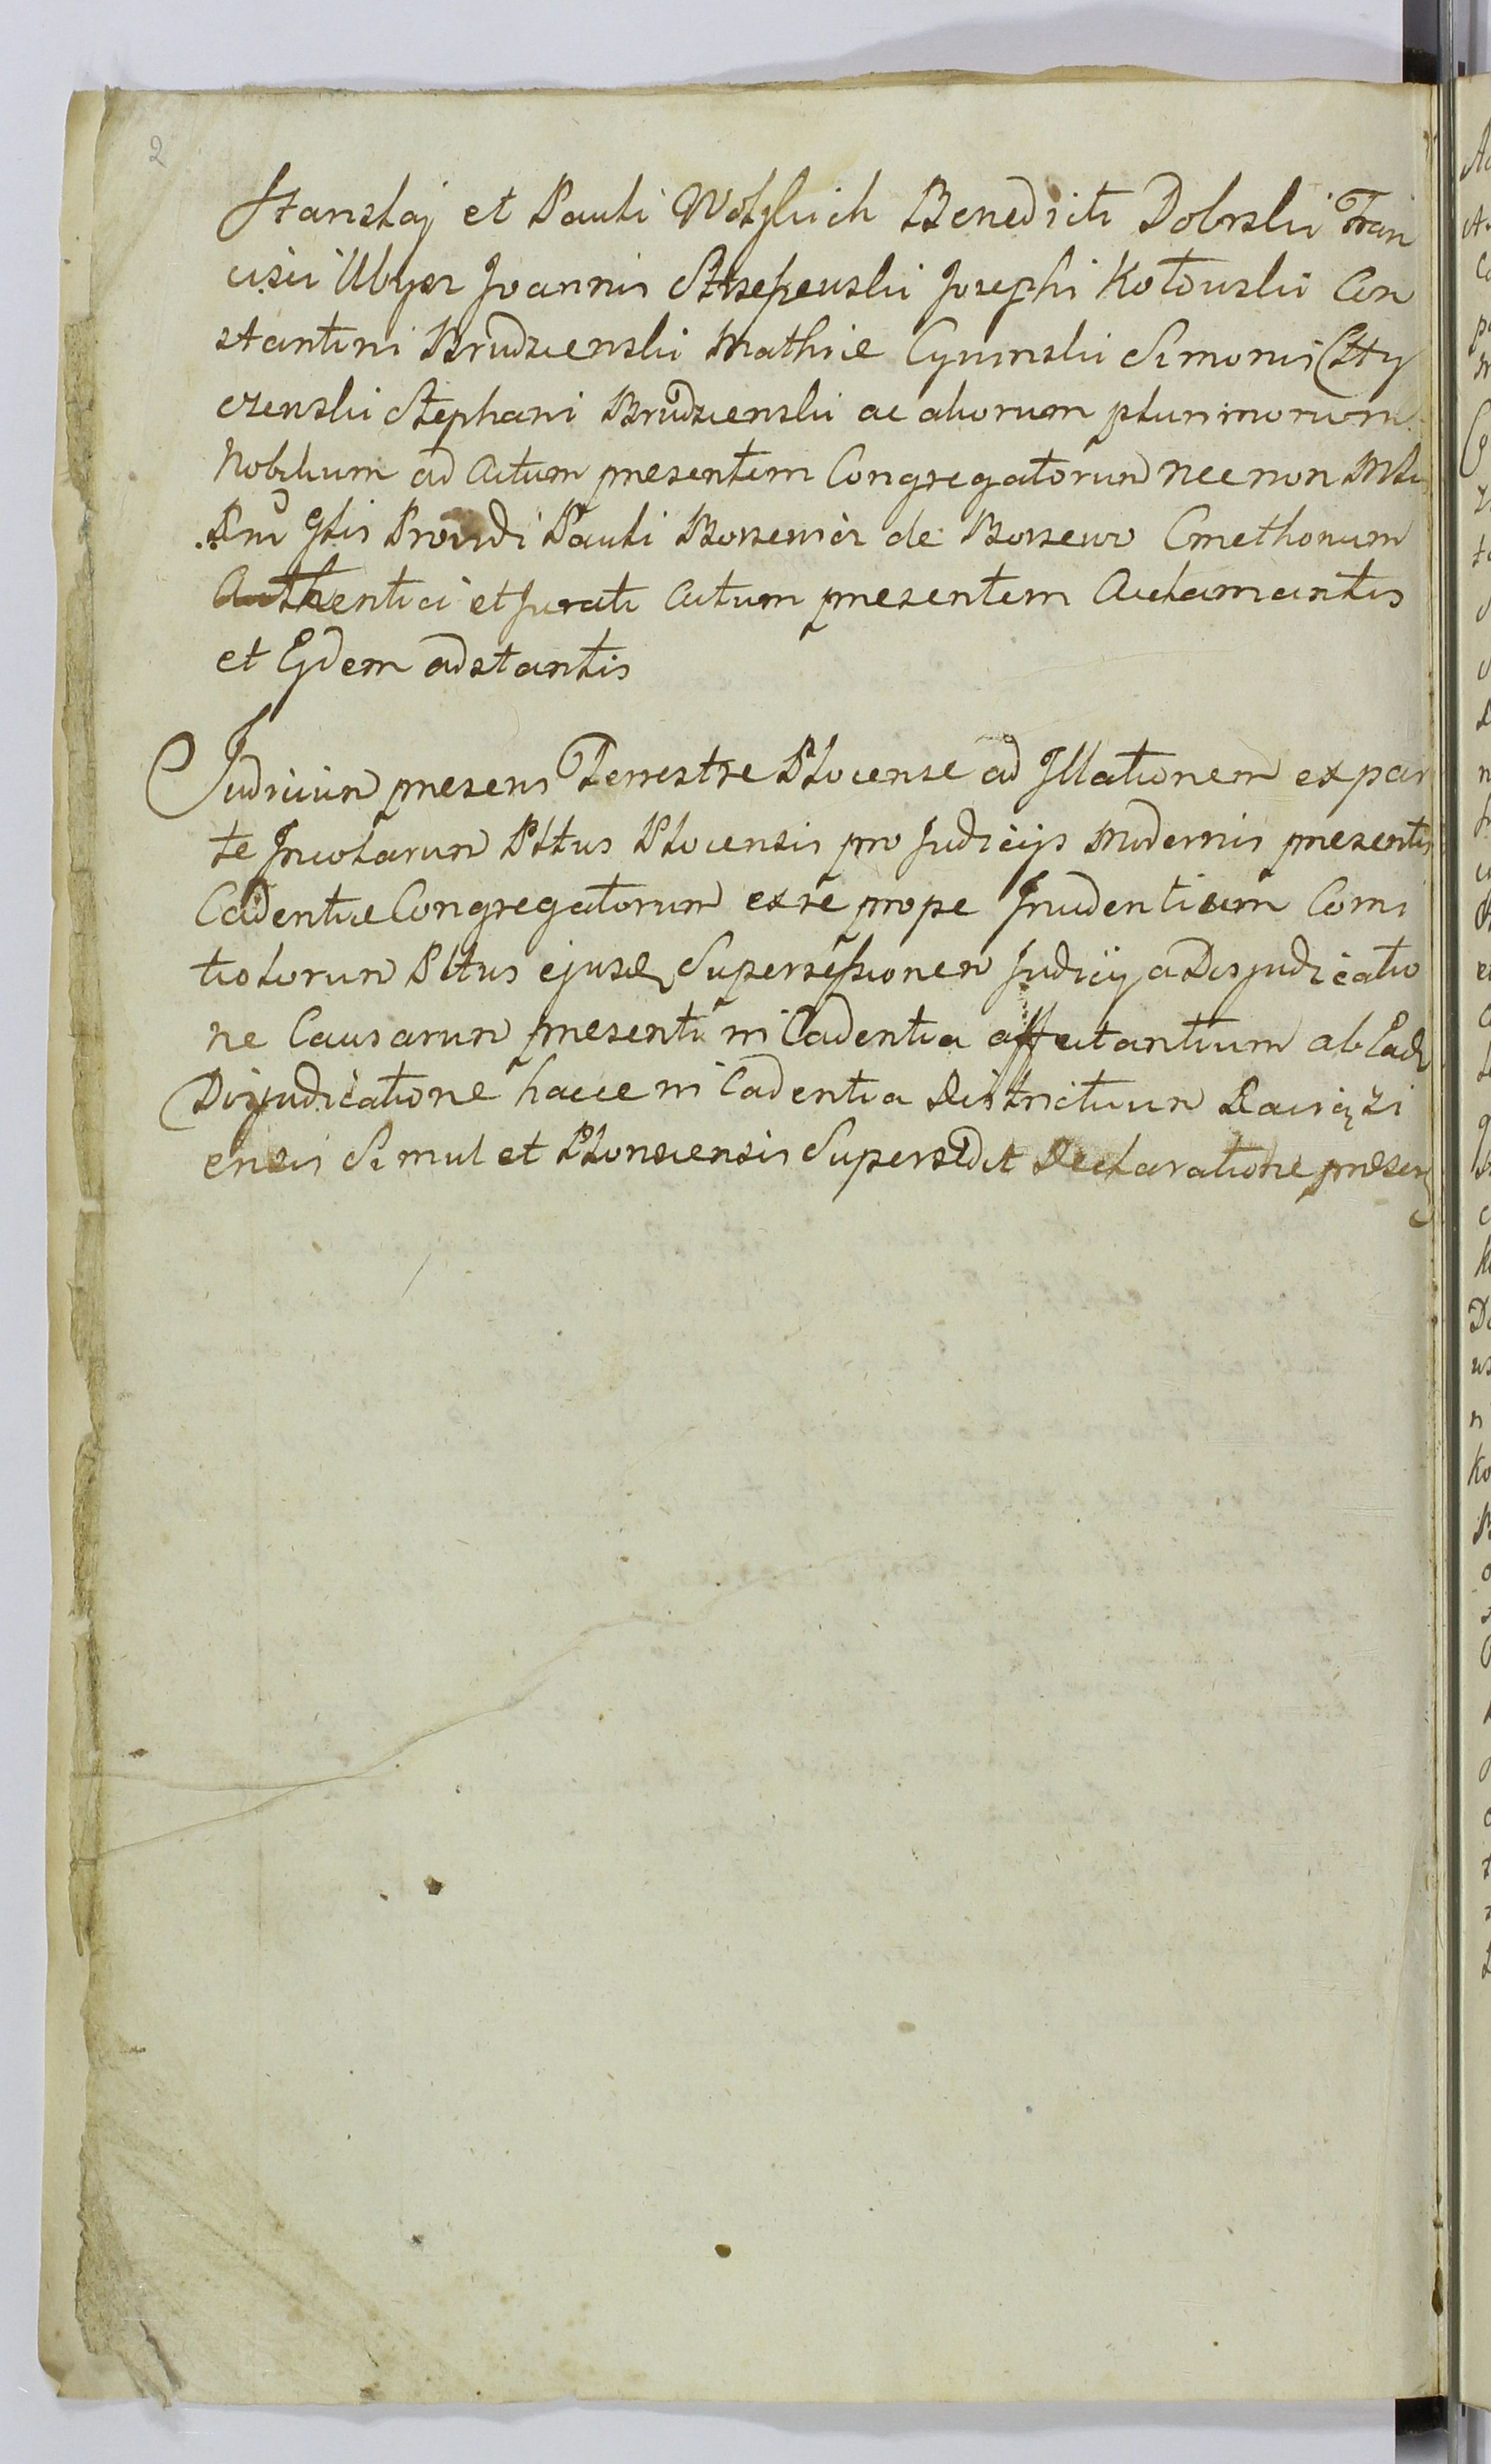 2
Stanslaj et Pauli Wolskich Benedicti Dobrski Fran
cisci Ubysz Joannis Strzeszewski Josephi Kotowski Con
stantini Brudzienski Mathiæ Cywinski Simonis
czenski Stephani Brudzienski ac aliorum plurimorum
Nobilium ad Actum presentem Congregatorum nec non
Dni Gtis Providi Pauli de Cmethonum
Authentici et Jurati Actum presentem Aclamantis
et Ejdem adstantis
Judicium presens Terrestre Plocense ad Illationem ex par
te Incolarum Pltus Plocensis pro Judicijs modernis presentis
Cadentiæ Congregatorum ex re prope Comi
tiolorum Pltus ejusd Supersessionem Judicij a Disjudicatio
ne Causarum presenti in Cadentia affectantium ab Ead
Disjudicatione hacce in Cadentia Districtuum Raciązi
ensis Simul et Plonscensis Supersedit Declaratione presen